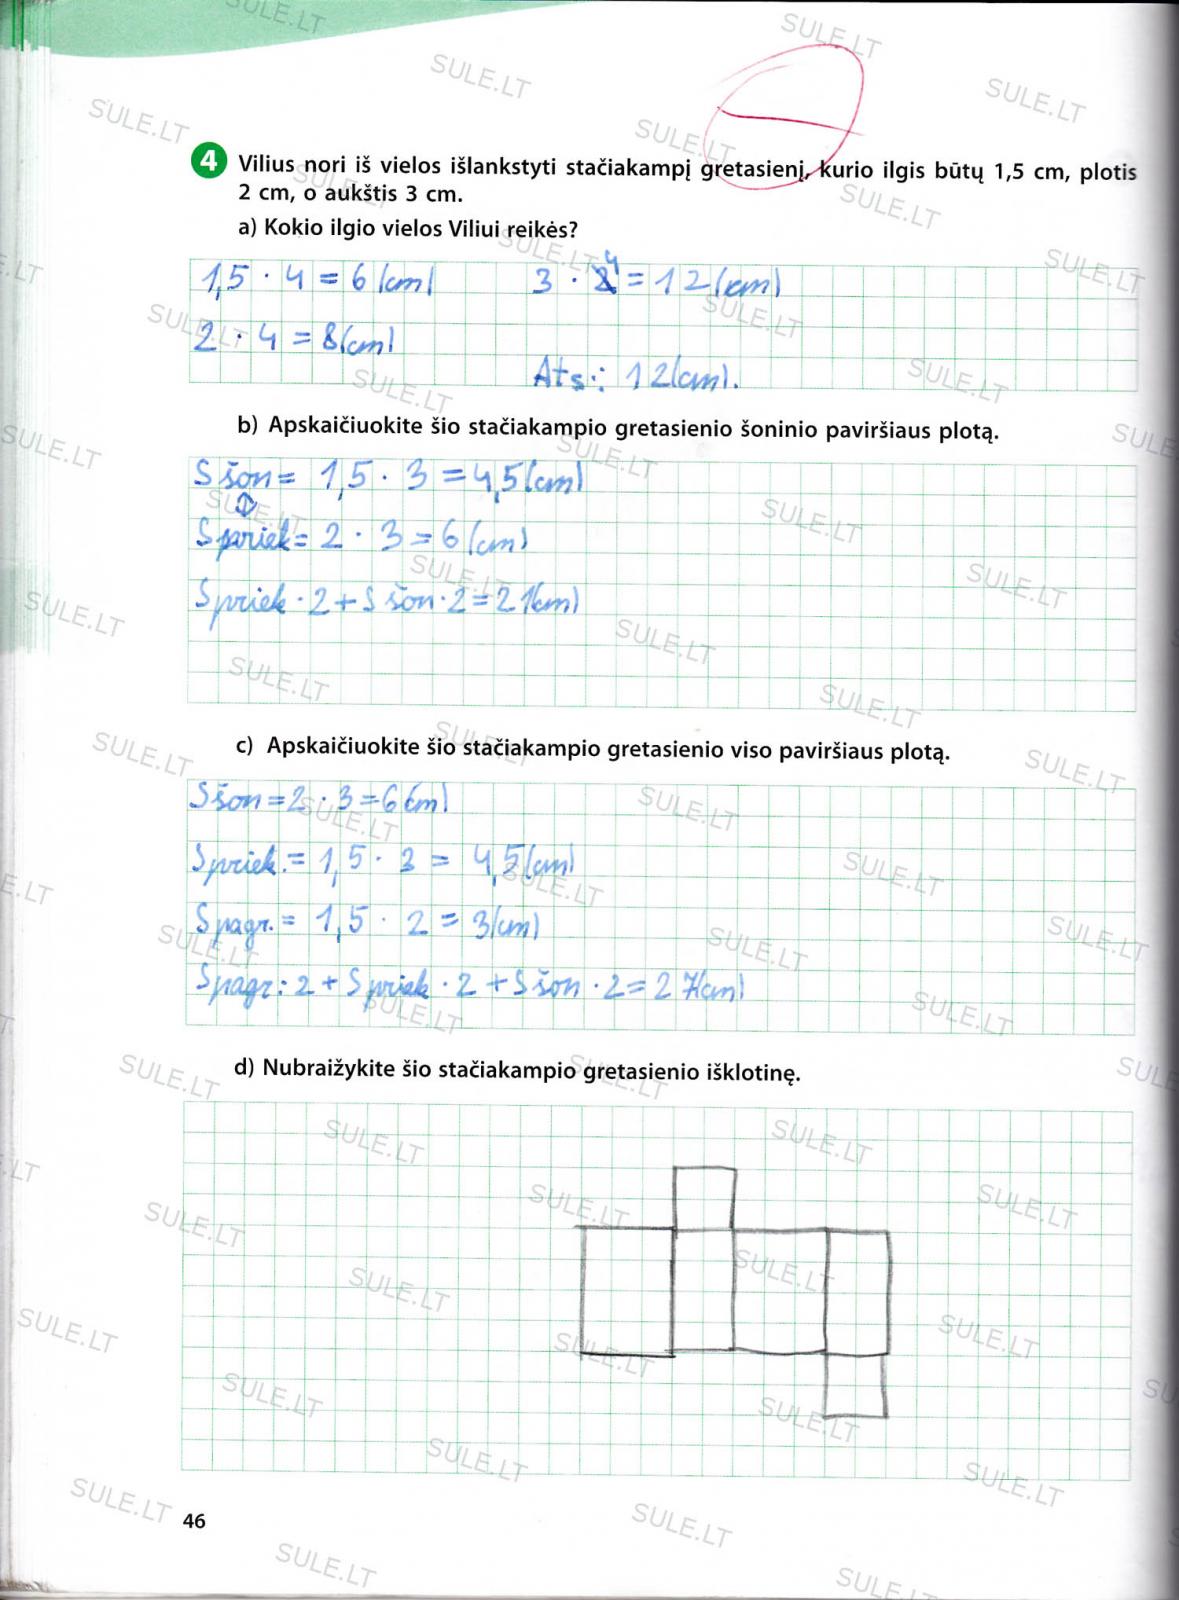 4 Vilius nori iš vielos išlankstyti stačiakampį gretasienį, kurio ilgis būtų 1,5 cm, plotis
2 cm, o aukštis 3 cm.
a) Kokio ilgio vielos Viliui reikės?
1,5 · 4 = 6 (cm) 3 · 4 = 12 (cm)
2 · 4 = 8 (cm)
Ats.: 12 (cm).
b) Apskaičiuokite šio stačiakampio gretasienio šoninio paviršiaus plotą.
S šon = 1,5 · 3 = 4,5 (cm)
S priek = 2 · 3 = 6 (cm)
S priek · 2 + S šon · 2 = 21 (cm)
c) Apskaičiuokite šio stačiakampio gretasienio viso paviršiaus plotą.
S šon = 2 · 3 = 6 (cm)
S priek. = 1,5 · 3 = 4,5 (cm)
S pagr. = 1,5 · 2 = 3 (cm)
S pagr. · 2 + S priek · 2 + S šon · 2 = 27 (cm)
d) Nubraižykite šio stačiakampio gretasienio išklotinę.
46
SULE.LT